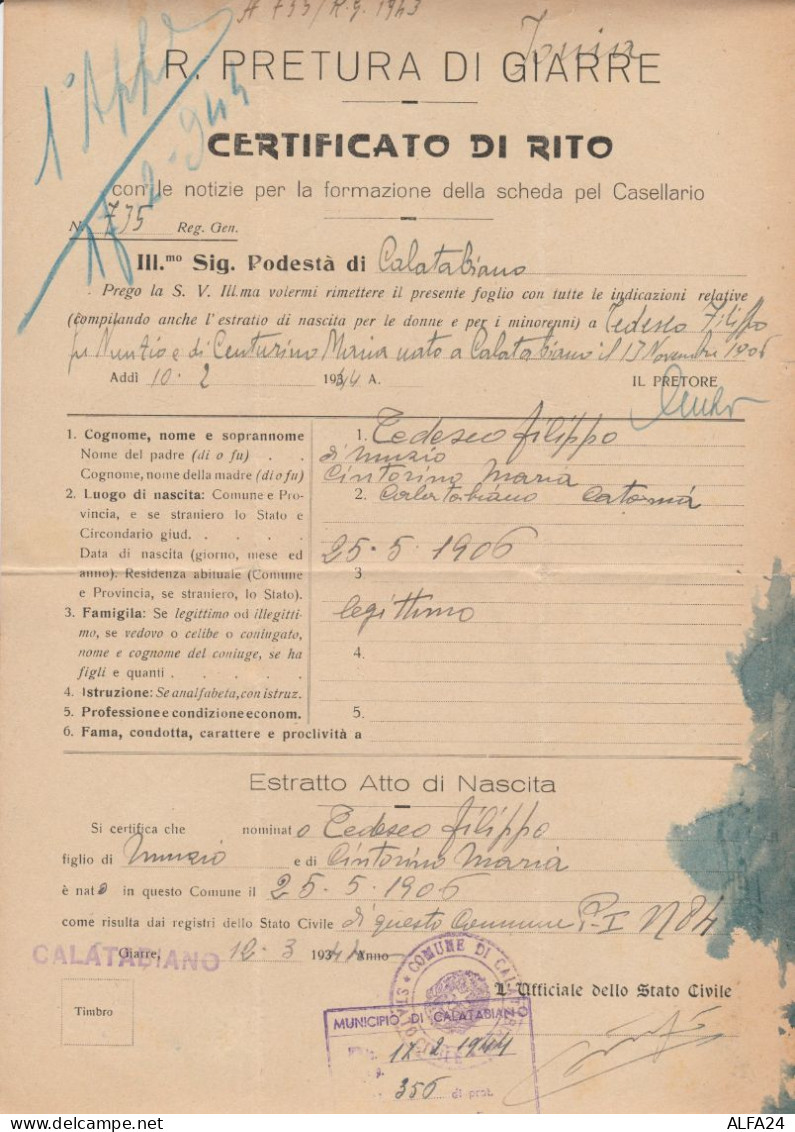 R. PRETURA DI GIARRE
CERTIFICATO DI RITO
con le notizie per la formazione della scheda pel Casellario
N. 735 Reg. Gen.
Ill.mo Sig. Podestà di Calatabiano
Prego la S. V. Ill.ma volermi rimettere il presente foglio con tutte le indicazioni relative
(compilando anche l'estratio di nascita per le donne e per i minorenni) a Tedesco Filippo
fu Nunzio e di Centurino Maria nato a Calatabiano il 17 Novembre 1906
Addì 10.2 1944 A. IL PRETORE
1. Cognome, nome e soprannome 1. Tedesco Filippo
Nome del padre (di o fu) . . di Nunzio
Cognome, nome della madre (di o fu) Cintorino Maria
2. Luogo di nascita: Comune e Pro- 2. Calatabiano Catania
vincia, e se straniero lo Stato e
Circondario giud. . . . .
Data di nascita (giorno, mese ed 25.5.1906
anno). Residenza abituale (Comune 3.
e Provincia, se straniero, lo Stato).
3. Famiglia: Se legittimo od illegitti- legittimo
mo, se vedovo o celibe o coniugato,
nome e cognome del coniuge, se ha 4.
figli e quanti . . . . .
4. Istruzione: Se analfabeta, con istruz.
5. Professione e condizione econom. 5.
6. Fama, condotta, carattere e proclività a
Estratto Atto di Nascita
Si certifica che nominato Tedesco Filippo
figlio di Nunzio e di Cintorino Maria
è nato in questo Comune il 25.5.1906
come risulta dai registri dello Stato Civile di questo Comune P. I N 84
CALATABIANO
Giarre, 12.3 1944 Anno
COMUNE DI CALATABIANO
STATO CIVILE
L'Ufficiale dello Stato Civile
Timbro
MUNICIPIO DI CALATABIANO
17 2 1944
356 di prot.
ALFA24